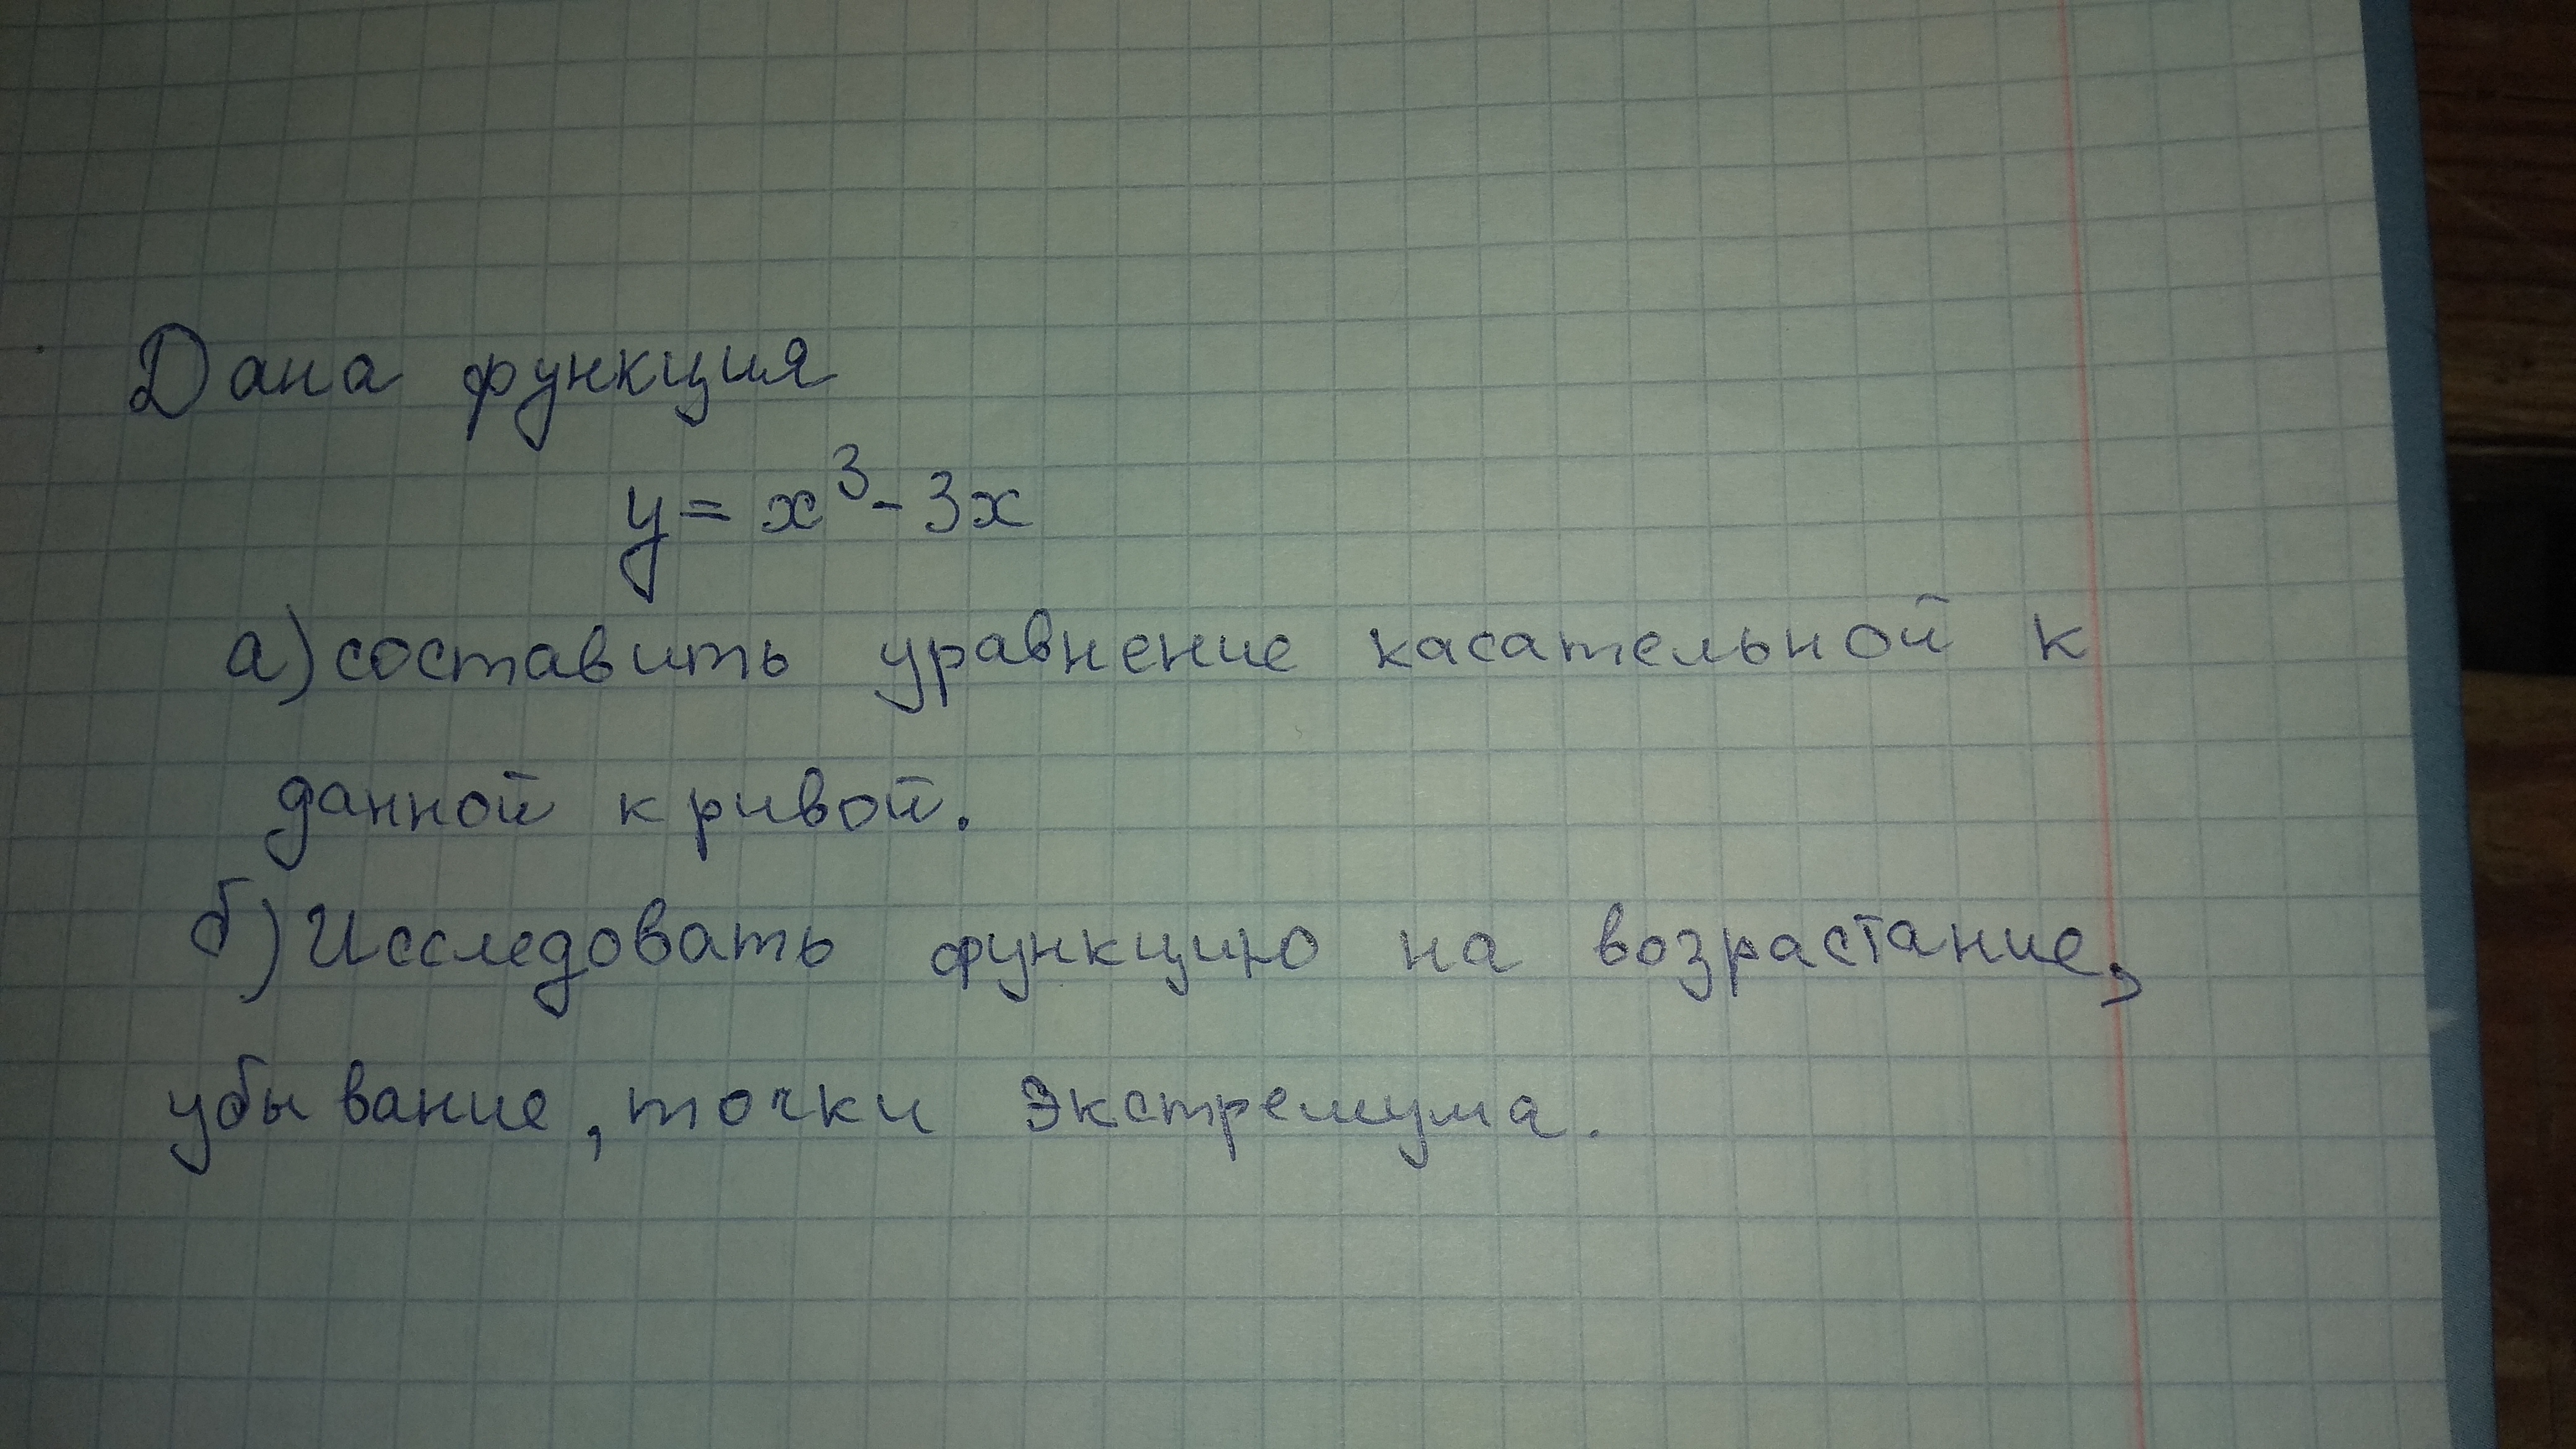 Дана функция
y = x³ - 3x
а) составить уравнение касательной к
данной кривой.
б) Исследовать функцию на возрастание,
убывание, точки экстремума.